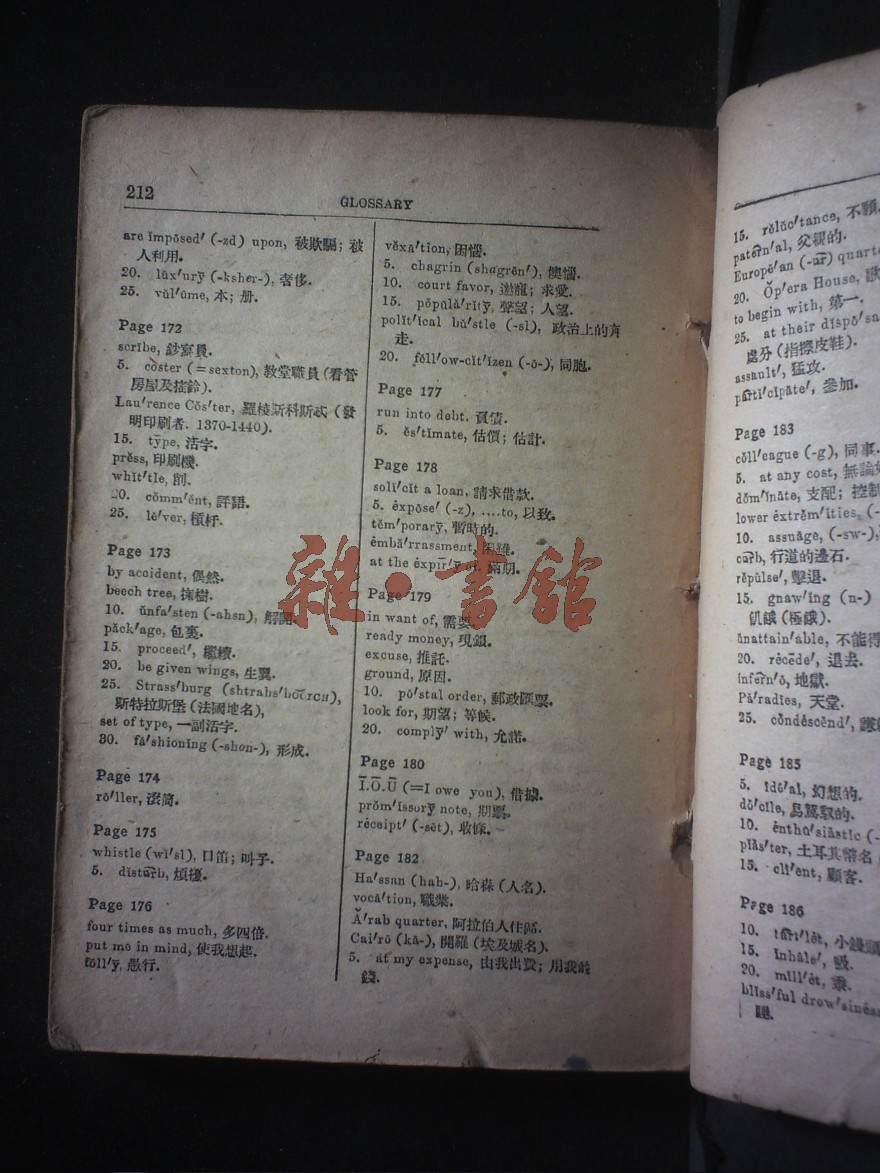 212
GLOSSARY
are ĭmpōsed′ (-zd) upon, 被欺騙; 被
人利用.
20. lŭx′urў (-ksher-), 奢侈.
25. vŏl′ūme, 本; 册.
Page 172
scrībe, 鈔寫員.
5. cŏster (=sexton), 教堂職員 (看管
房屋及搖鈴).
Lau′rence Cŏs′ter, 羅棱斯科斯忒 (發
明印刷者. 1370-1440).
15. tȳpe, 活字.
prĕss, 印刷機.
whĭt′tle, 削.
20. cŏmm′ĕnt, 評語.
25. lē′ver, 槓杆.
Page 173
by accident, 偶然.
beech tree, 樹.
10. ŭnfa′sten (-ahsn), 解開.
păck′age, 包裹.
15. proceed′, 繼續.
20. be given wings, 生翼.
25. Strass′burg
斯特拉斯堡 (法國地名),
set of type, 一副活字.
30. fă′shionĭng (-shon-), 形成.
Page 174
rō′ller, 滾筒.
Page 175
whistle (wĭ′sl), 口笛; 叫子.
5. dĭsturb, 煩擾.
Page 176
four times as much, 多四倍.
put me in mind, 使我想起.
fŏll′ў, 愚行.
vĕxā′tion, 困惱.
5. chagrin (shagrēn′), 懊惱.
10. court favor, 邀寵; 求愛.
15. pŏpūlă′rĭtў, 聲望; 人望.
polĭt′ĭcal bŭ′stle (-sl), 政治上的奔
走.
20. fĕll′ow-cĭt′ĭzen (-ō-), 同胞.
Page 177
run into debt. 負債.
5. ĕs′tĭmate, 估價; 估計.
Page 178
solĭ′cĭt a loan, 請求借款.
5. ĕxpōse′ (-z), ....to, 以致.
tĕm′porarў, 暫時的.
ĕmbă′rrassment, 困難.
at the ĕxpīr′ў of, 滿期.
Page 179
in want of, 需要.
ready money, 現銀.
excuse, 推託.
ground, 原因.
10. pō′stal order, 郵政匯票.
look for, 期望; 等候.
20. complȳ′ with, 允諾.
Page 180
Ī.Ō.Ū (=I owe yon), 借據.
prŏm′ĭssorў note, 期票.
rĕceipt′ (-sēt), 收條.
Page 182
Ha′ssan (hah-), 哈森 (人名).
vocā′tion, 職業.
Ă′rab quarter, 阿拉伯人住區.
Cai′rō (kā-), 開羅 (埃及城名).
5. at my expense, 由我出費; 用我的
錢.
雜·書館
15. rĕlŭc′tance, 不願.
patern′al, 父親的.
Europē′an (-ar) quarte
20. Ŏp′era House, 歌
to begin with, 第一.
25. at their dĭspō′sa
處分 (指擦皮鞋).
assault′, 猛攻.
partĭ′cĭpāte′, 參加.
Page 183
cŏll′eague (-g), 同事.
5. at any cost, 無論如
dŏm′ĭnāte, 支配; 控制
lower ĕxtrĕm′ĭties, (-
10. assuage, (-sw-),
curb, 行道的邊石.
rĕpŭlse′, 擊退.
15. gnaw′ĭng (n-)
飢餓 (極餓).
ŭnattain′able, 不能得
20. rĕcēde′, 退去.
ĭnfern′ō, 地獄.
Pă′radīes, 天堂.
25. cŏndĕscĕnd′,
Page 185
5. īdē′al, 幻想的.
dō′cīle, 易駕馭的.
10. ĕnthū′siăstĭc (-
pĭăs′ter, 土耳其幣名
15. clī′ent, 顧客.
Page 186
10. 小饅頭
15. ĭnhāle′, 吸.
20. mĭll′ĕt, 黍.
blĭss′ful drow′sinĕss